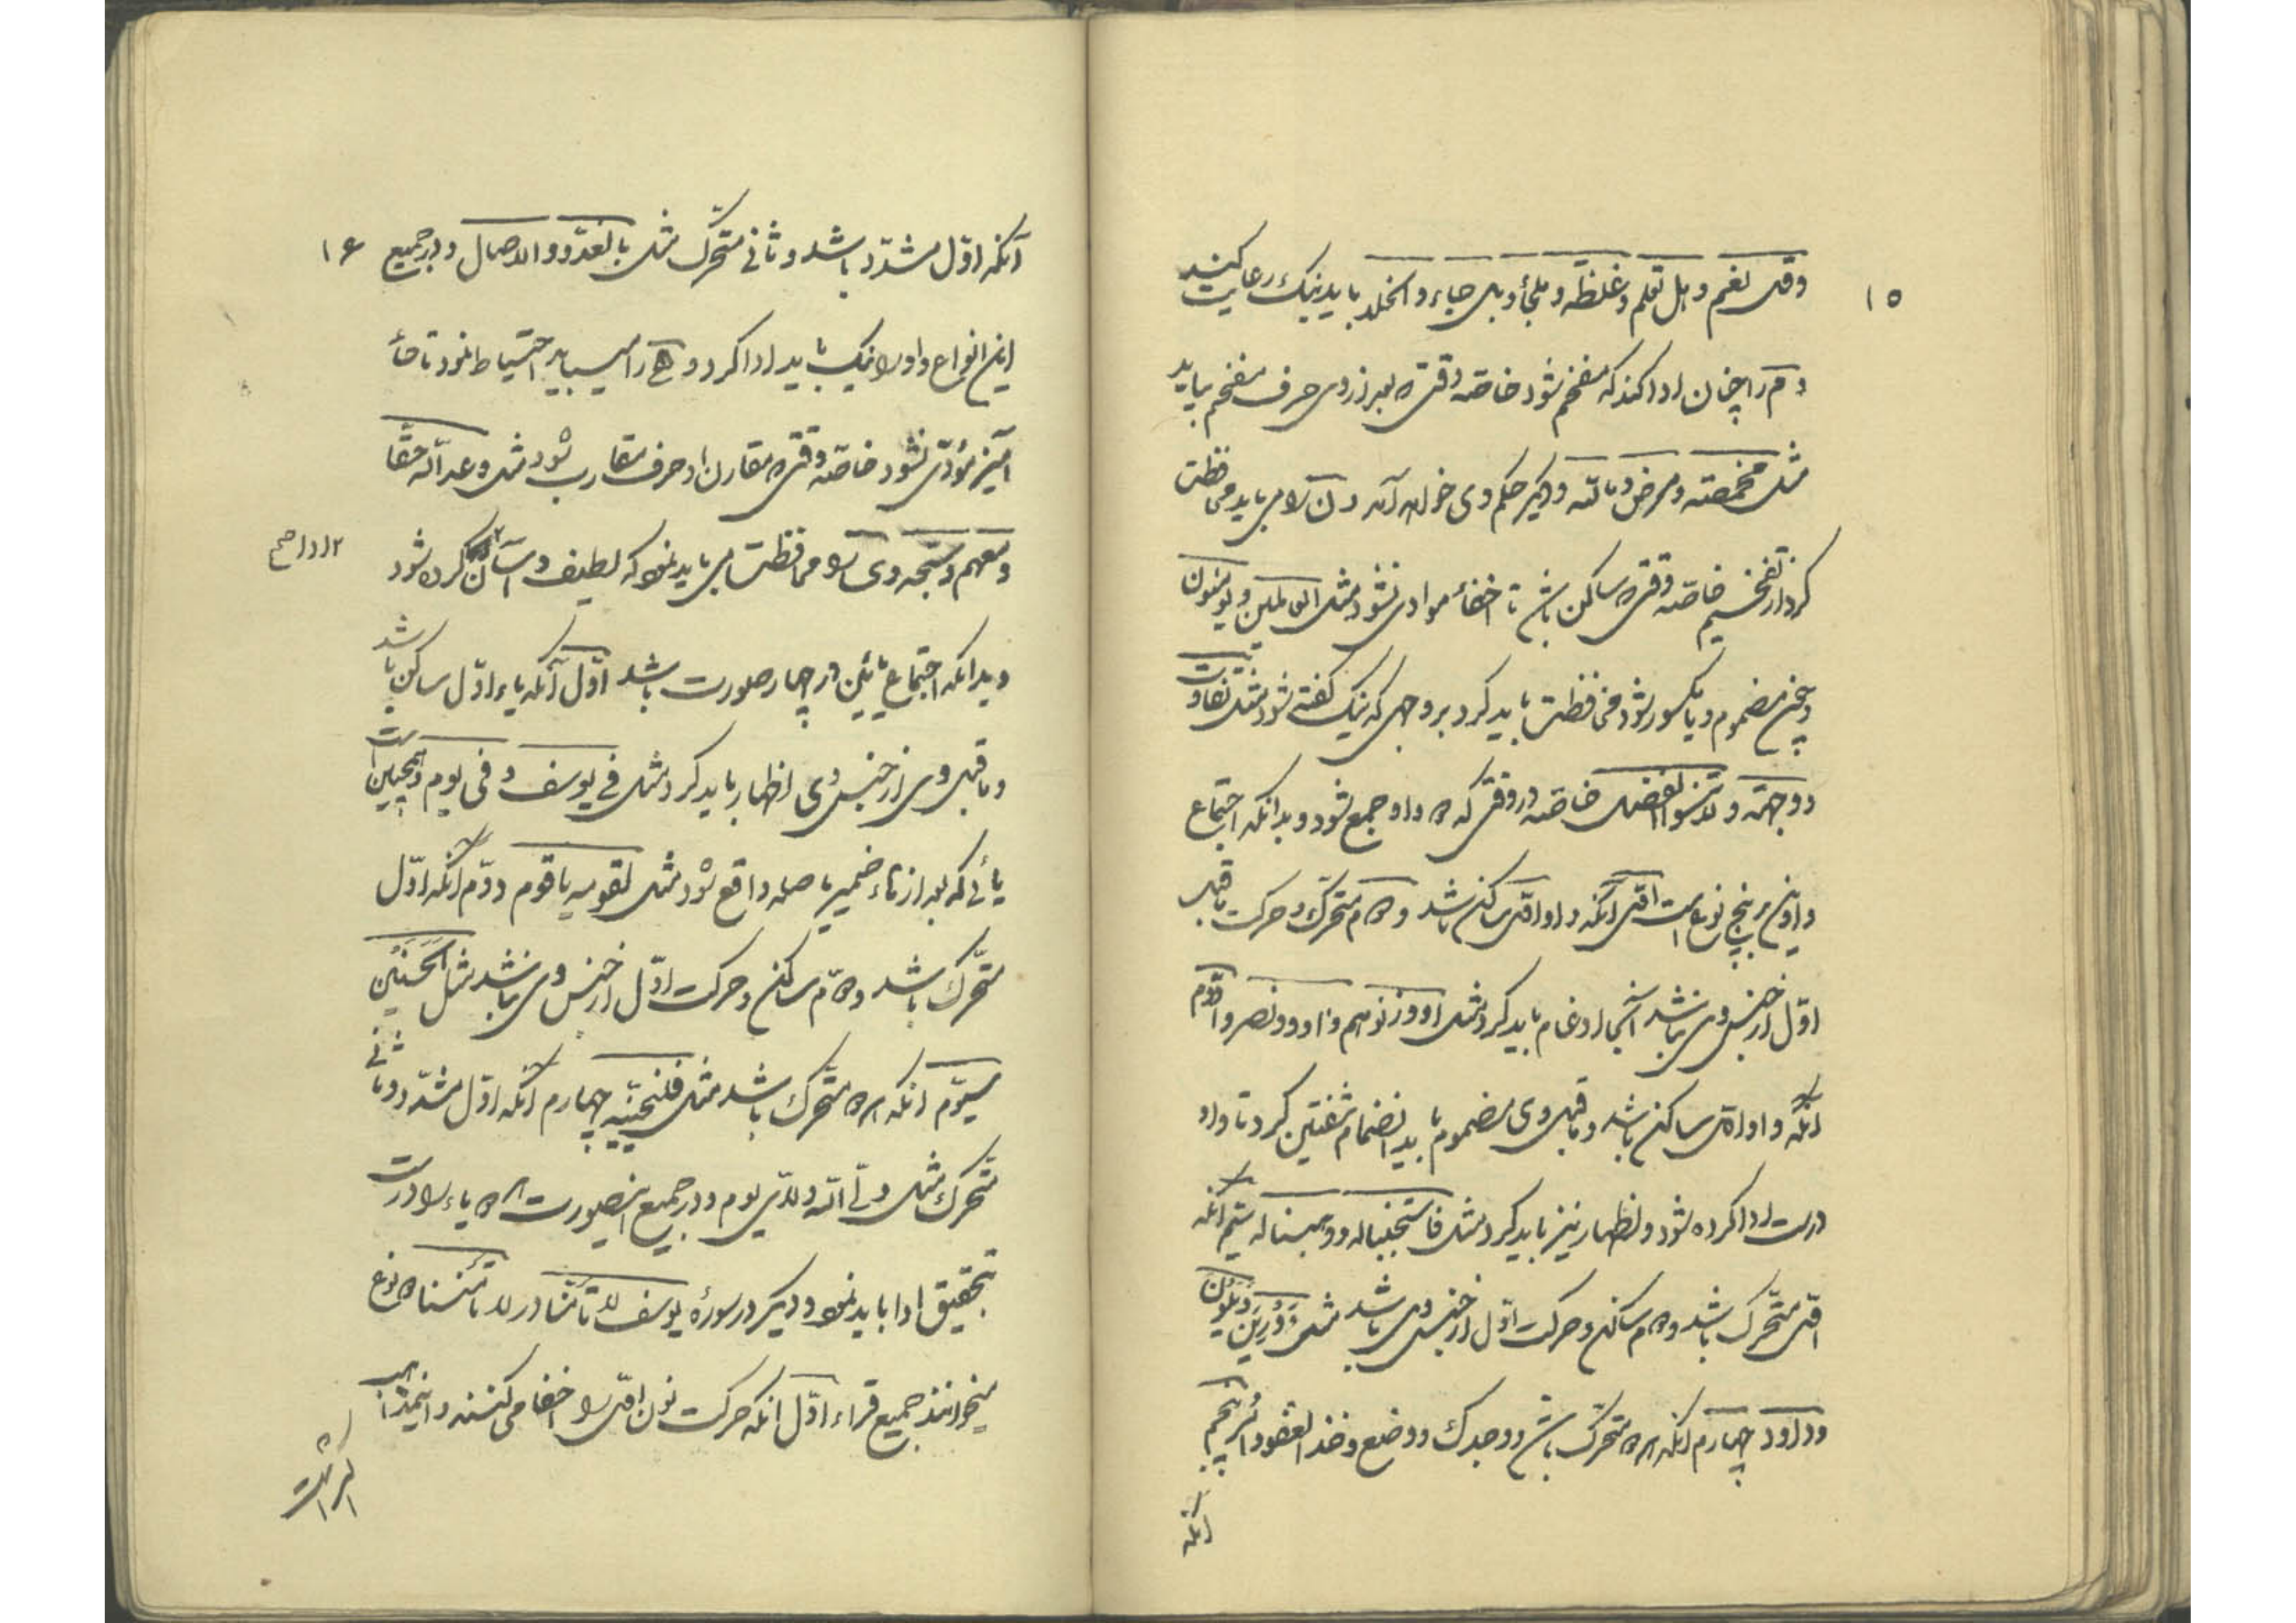 ۱۵
وقل نعم و هل تعلم و غلظة و ملجأ و بل جاء و اخلد باید نیک رعایت کند
و م را چنان ادا کند که مفخم نشود خاصه وقتی که بعد از وی حرف مفخم بیاید
مثل مخمصة و مرض و مالله و دیگر حکم وی خواهد آمد و ن را می باید محافظت
کرد از تفخیم خاصه وقتی که ساکن باشد تا اخفأ مؤدی نشود مثل العالمین و یومنون
و چون مضموم و یا مکسور شود محافظت باید کرد بر وجهی که نیک گفته شود مثل تفاوت
و وجهة و لا تنسوا الفضل خاصه در وقتی که دو واو جمع شود و بدانکه اجتماع
واوین بر پنج نوع است اول آنکه واو اول ساکن باشد و دوم متحرک و حرکت ماقبل
اول از جنس وی نباشد آنجا ادغام باید کرد مثل اووا و نصروا دوم
آنکه واو اول ساکن باشد و ماقبل وی مضموم باید انضمام شفتین کرد تا واو
درست ادا کرده شود و اظهار نیز باید کرد مثل فاستجبنا له و وهبنا له سیم آنکه
اول متحرک باشد و دوم ساکن و حرکت اول از جنس وی باشد مثل وُورِیَ و یلوون
و داود چهارم آنکه هر دو متحرک باشد و وجدک و وضع و خذ العفو و امر پنجم
آنکه
۱۶
آنکه اول مشدد باشد و ثانی متحرک مثل بالغدو و الاصال و در جمیع
این انواع واو را نیک باید ادا کرد و ه را میباید احتیاط نمود تا حأ
آمیز مؤدی نشود خاصه وقتی که مقارن او حرف مقارب شود مثل وعد الله حقا
و معهم و سبحه و ی را محافظت می باید نمود که لطیف و آسان کرده شود
۲ ادا صح
و بدانکه اجتماع یائین در چهار صورت باشد اول آنکه یاء اول ساکن باشد
و ماقبل وی از جنس وی اظهار باید کرد مثل فی یوسف و فی یوم و همچنین است
یائی که بعد از هاء ضمیر با صله واقع شود مثل لقومه یا قوم دوم آنکه اول
متحرک باشد و دوم ساکن و حرکت اول از جنس وی نباشد مثل الحسنیین
سیوم آنکه هر دو متحرک باشد مثل فلنحیینه چهارم آنکه اول مشدد و ثانی
متحرک مثل ولی الله و لدی یوم و در جمیع این صورت هر دو یاء را درست
تحقیق ادا باید نمود و دیگر در سورهٔ یوسف لا تأمنا در لا تأمنا دو نوع
میخوانند جمیع قراء اول آنکه حرکت نون اول را اخفا می کنند و این مذهب